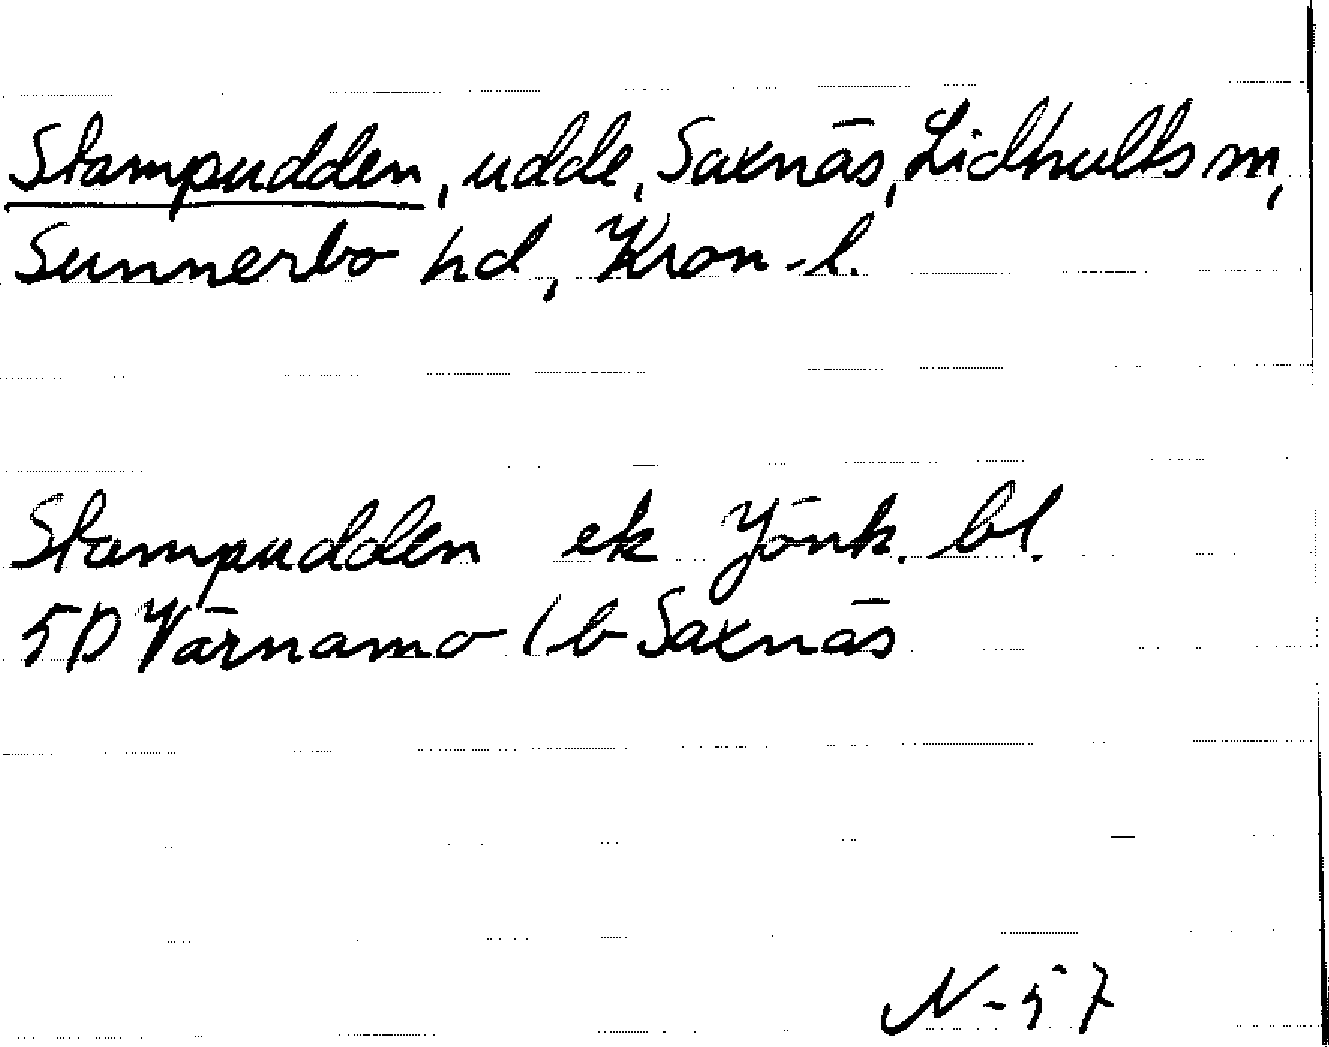 Stampudden, udde, Saxnäs, Lidhults sn,
Sunnerbo hd, Kron.l.
Stampudden ek Jönk. bl.
5D Värnamo (b Saxnäs
N-57